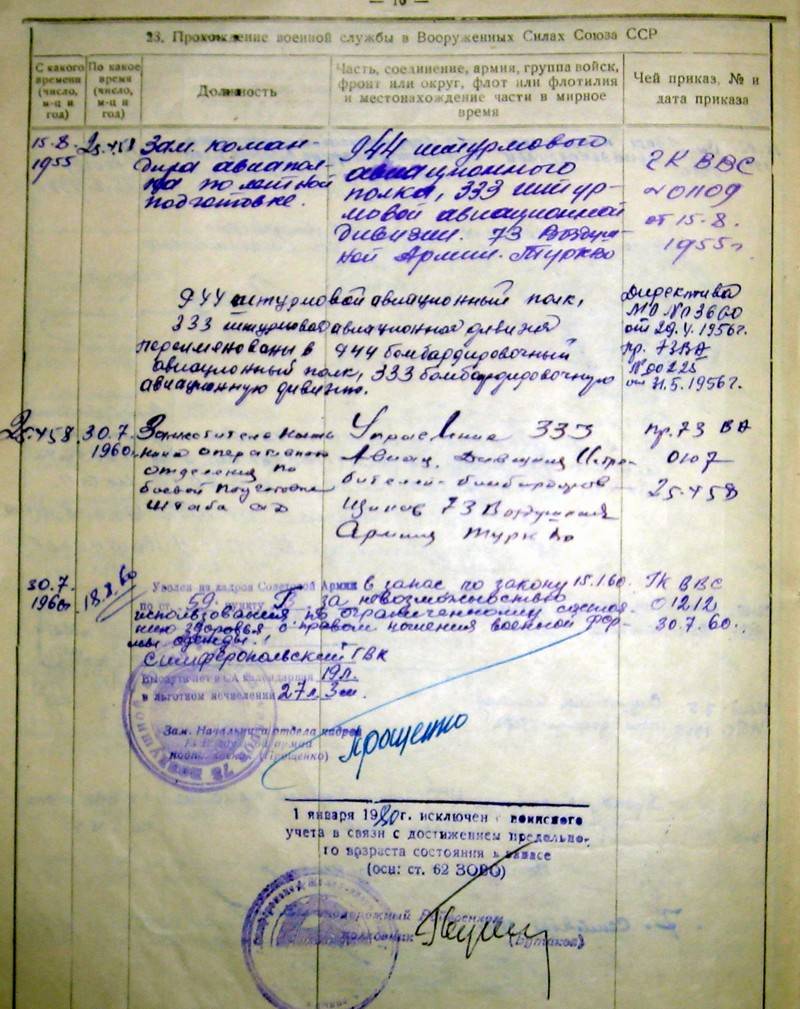 — 10 —
23. Прохождение военной службы в Вооруженных Силах Союза ССР
С какого времени (число, м-ц и год)
По какое время (число, м-ц и год)
Должность
Часть, соединение, армия, группа войск, фронт или округ, флот или флотилия и местонахождение части в мирное время
Чей приказ, № и дата приказа
15.8.
1955
25.4.58
Зам. коман-
дира авиапол-
ка по летной
подготовке.
944 штурмового
авиационного
полка, 333 штур-
мовой авиационной
дивизии. 73 Воздуш-
ной Армии. ТуркВО
ГК ВВС
№ 01109
от 15.8.
1955г
944 штурмовой авиационный полк,
333 штурмовая авиационная дивизия
переименованы в 944 бомбардировочный
авиационный полк, 333 бомбардировочную
авиационную дивизию.
Директива
МО №
от 29.V.1956г.
пр. 73 ВА
№ 00225
от 31.5.1956г.
25.4.58
30.7.
1960
Заместитель нача
оперативного
отделения по
боевой подготовке
штаба ад
Управление 333
Авиац. Дивизии Истре-
бителей-бомбардиров-
щиков 73 Воздушной
Армии ТуркВО
пр. 73 ВА
0107
25.4.58
30.7.
1960г
18.X.60
Уволен из кадров Советской Армии в запас по закону 15.1.60.
по ст. 59 пункту В за невозможностью
использования по ограниченному состоя-
нию здоровья с правом ношения военной фор-
мы одежды.
Симферопольский ГВК
Выслуга лет в СА календарная 19 л.
в льготном исчислении 27 л. 3 м.
ГК ВВС
01212
30.7.60.
Зам. Начальника отдела кадров
73 Воздушной армии
подполковник (Прощенко)
Прощенко
1 января 1980 г. исключен с воинского
учета в связи с достижением предельно-
го возраста состояния в запасе
(осн: ст. 62 ЗОВО)
Железнодорожный Райвоенком
полковник
(Бутаков)